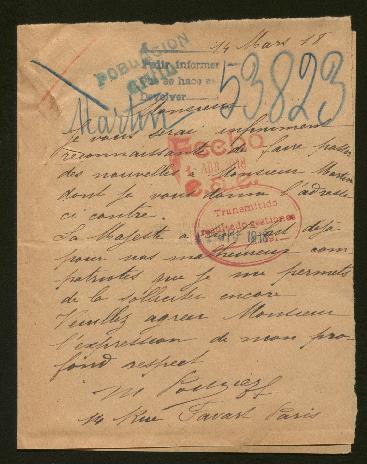 14 Mars 18
POBLACION
CIVIL
Pedir informes
Devolver
53823
Martin
Monsieur
Je vous serai infiniment
reconnaissante de faire passer
des nouvelles à Monsieur Martin
dont je vous donne l'adresse
ci contre.
Fecho
ABR 1918
Sa Majesté a est déjà
pour nos malheureux com
patriotes que je me permets
de la solliciter encore
Transmitido
resultado gestiones
1918
Veuillez agréer Monsieur
l'expression de mon pro
fond respect
M
14 Rue Favart Paris